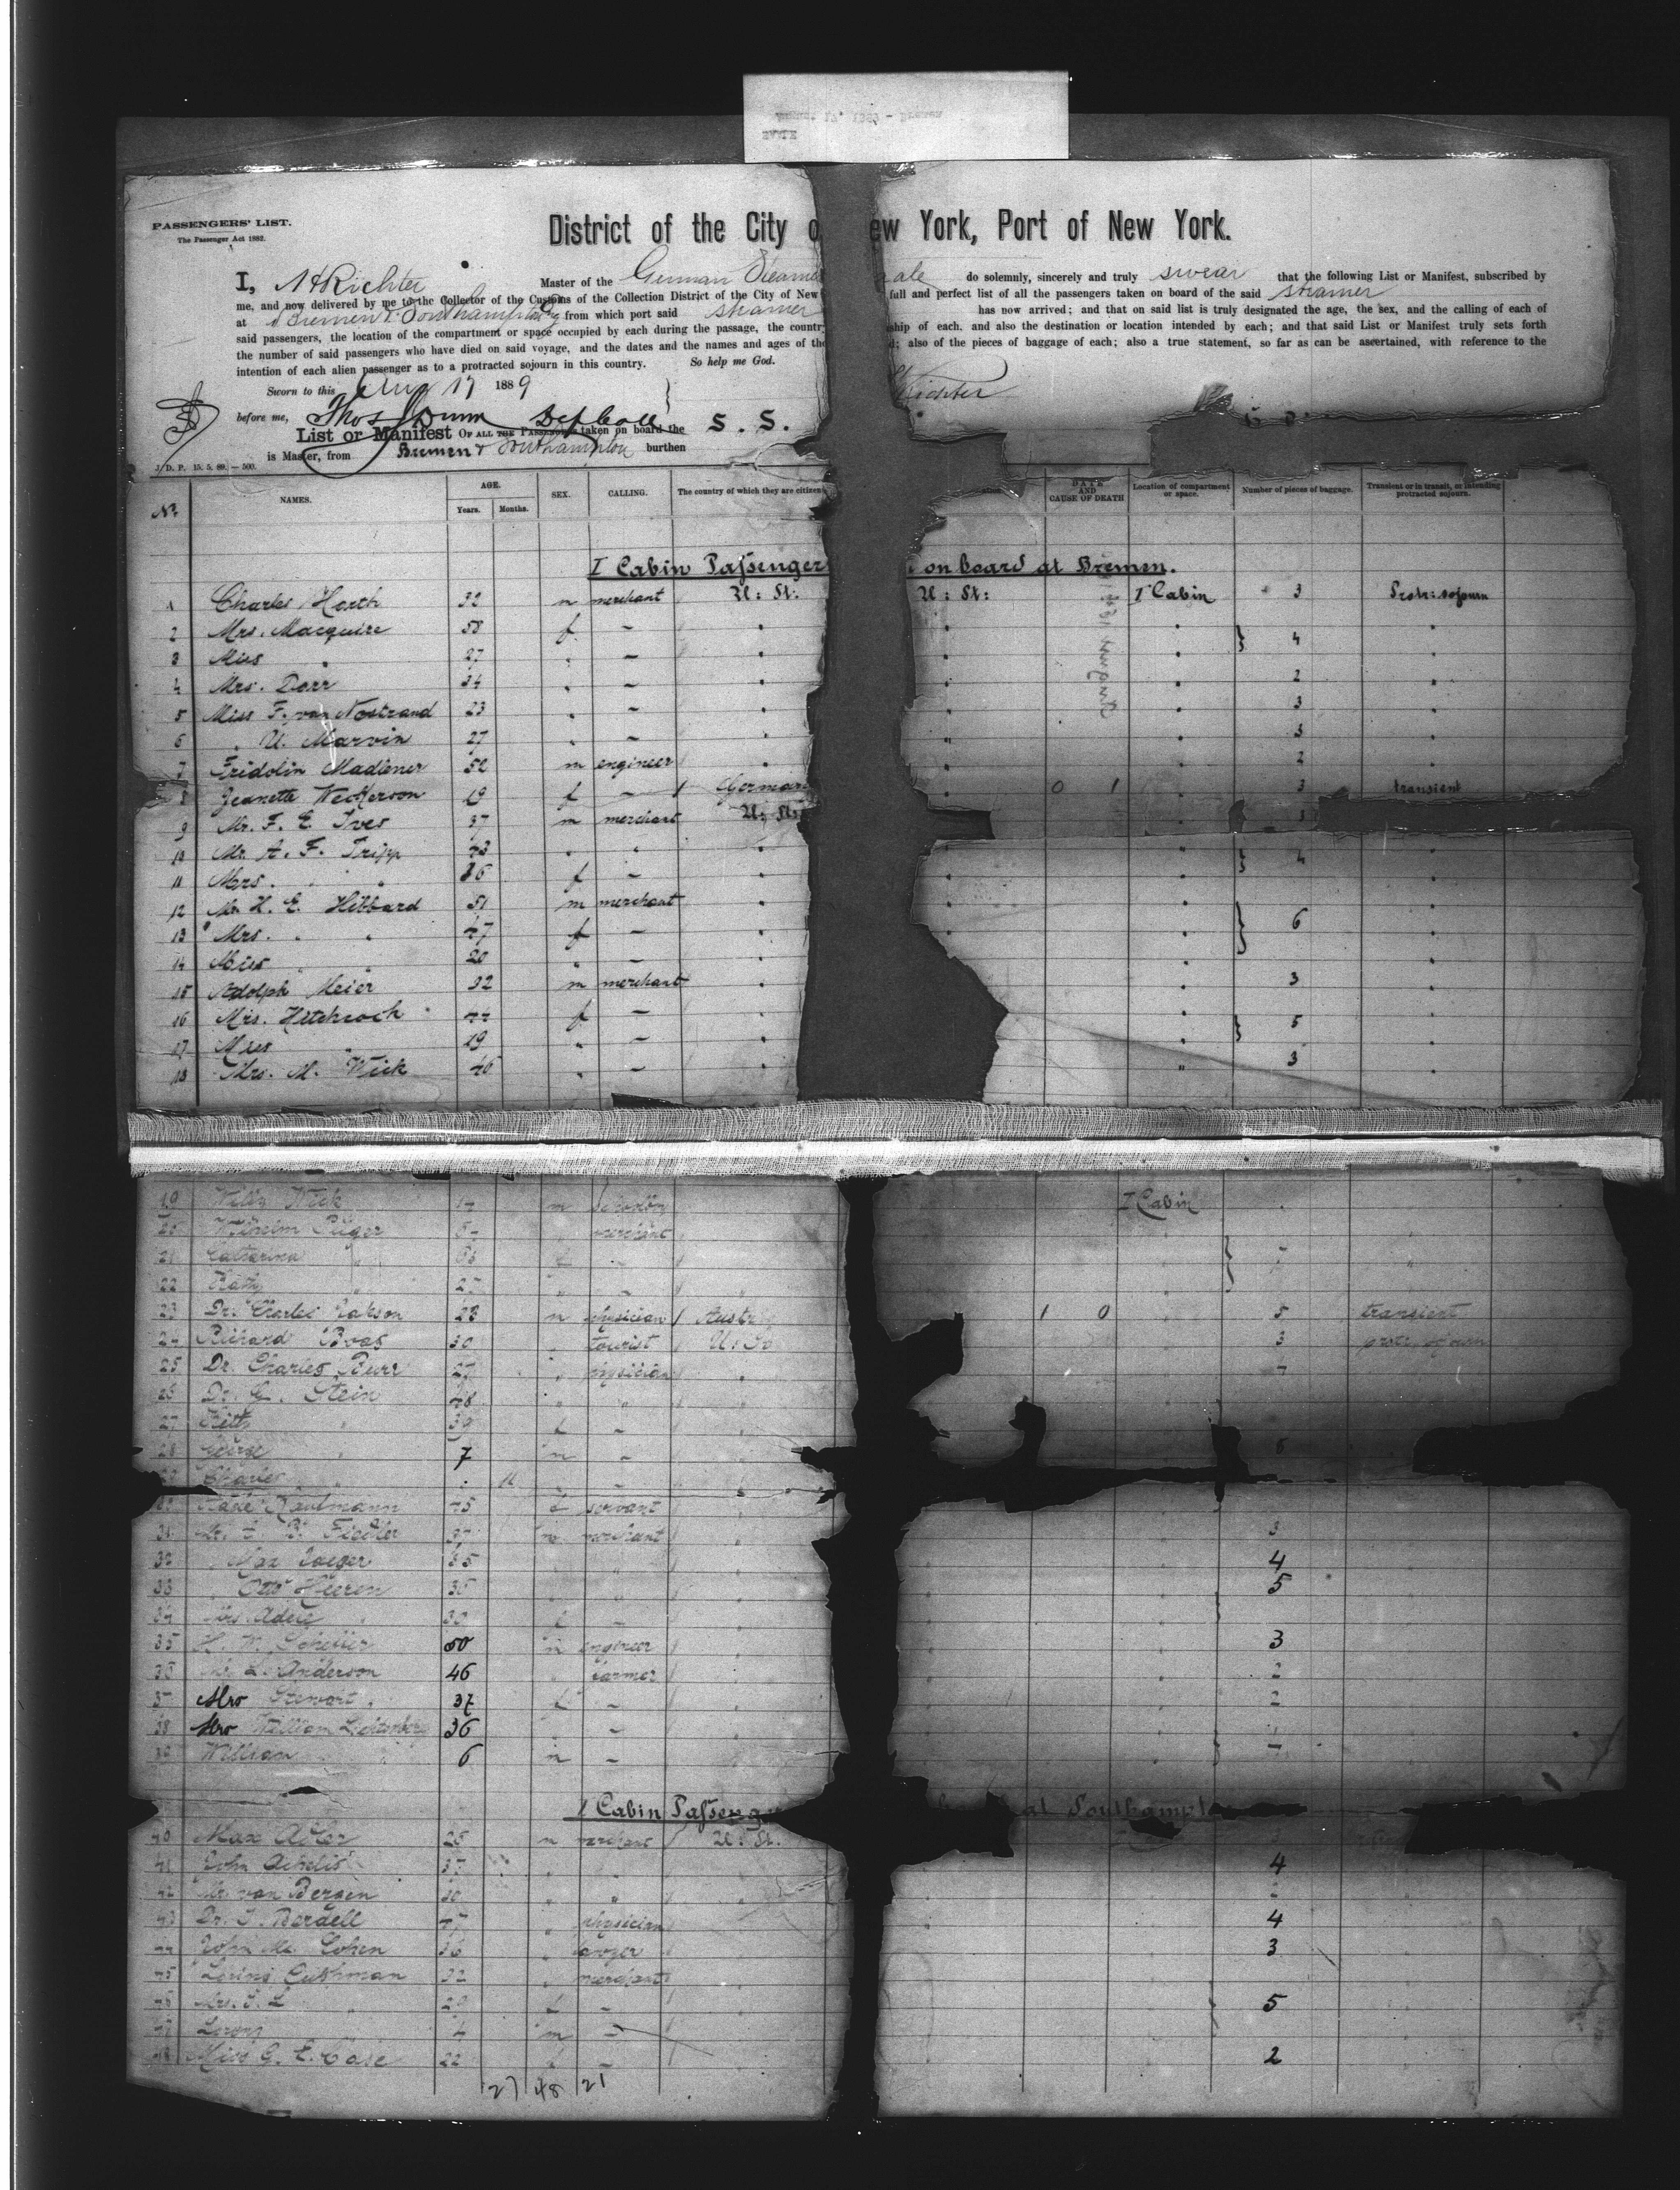 PASSENGERS' LIST.
The Passenger Act 1882.
District of the City o ew York, Port of New York.
I, Richter Master of the German Steamer aale do solemnly, sincerely and truly swear that the following List or Manifest, subscribed by
me, and now delivered by me to the Collector of the Customs of the Collection District of the City of New full and perfect list of all the passengers taken on board of the said steamer
at Bremen & Southampton from which port said steamer has now arrived; and that on said list is truly designated the age, the sex, and the calling of each of
said passengers, the location of the compartment or space occupied by each during the passage, the country ship of each, and also the destination or location intended by each; and that said List or Manifest truly sets forth
the number of said passengers who have died on said voyage, and the dates and the names and ages of the d; also of the pieces of baggage of each; also a true statement, so far as can be ascertained, with reference to the
intention of each alien passenger as to a protracted sojourn in this country. So help me God.
Sworn to this Aug 17 1889 Richter
before me, Thos Dunn Dep Coll
List or Manifest OF ALL THE PASSENGERS taken on board the S. S.
is Master, from Bremen & Southampton burthen
J. D. P. 15. 5. 89. — 500.
No. NAMES. AGE. Years. Months. SEX. CALLING. The country of which they are citizen DATE AND CAUSE OF DEATH Location of compartment or space. Number of pieces of baggage. Transient or in transit, or intending protracted sojourn.
I Cabin Passenger on board at Bremen.
1 Charles Horth 32 m merchant U: St. U: St: I Cabin 3 Protr: sojourn
2 Mrs. Macquire 58 f — 4
3 Miss " 27 " —
4 Mrs. Dorr 34 " — 2
5 Miss F. van Nostrand 23 " — 3
6 " U. Marvin 27 " — 3
7 Fridolin Madlener 52 m engineer 2
8 Jeanette 19 f — German 0 1 3 transient
9 Mr. F. E. Ives 37 m merchant U: St: 3
10 Mr. A. F. Tripp 43 " " 4
11 Mrs. " " 36 f —
12 Mr. H. E. Hibbard 51 m merchant 6
13 Mrs. " " 47 f —
14 Miss " " 20 " —
15 Adolph Meier 32 m merchant 3
16 Mrs. Hitchcock 44 f — 5
17 Miss " 19 " —
18 Mrs. M. Wick 46 " — 3
19 Willy Wick 14 m I Cabin
20 Wilhelm 54 " merchant
21 Catharina " f — 7
22 Kathy " 27 " —
23 Dr. Charles 28 m physician Austr 1 0 5 transient
24 Richard Boas 30 " tourist U: St 3 protr. sojourn
25 Dr. Charles Burr 27 " physician 7
26 Dr. G. Stein 48 " "
27 " 39 f —
28 George " 7 m — 6
29 Charles " 11 " —
30 Kaufmann 45 f servant
31 Mr. Fiedler 37 m merchant 3
32 " Max Jaeger 35 " " 4
33 " Otto Heeren 35 " " 5
34 Mrs. Adele " 30 f —
35 H. W. 50 m engineer 3
36 Mr. L. Anderson 46 " farmer 2
37 Mrs Stewart 37 f — 2
38 Mrs William Lichtenberg 36 " —
39 William " 6 m — 7
I Cabin Passenge at Southampto
40 Max Adler 25 m merchant U: St.
41 John Achelis 37 " " 4
42 Mr. van Bergen 30 " "
43 Dr. J. Berdell " physician 4
44 John M. Cohen 36 " lawyer 3
45 Loring Cushman 32 " merchant
46 Mrs. J. L. " 29 f — 5
47 Loring 4 m —
48 Miss G. E. Case 22 f — 2
27 48 21